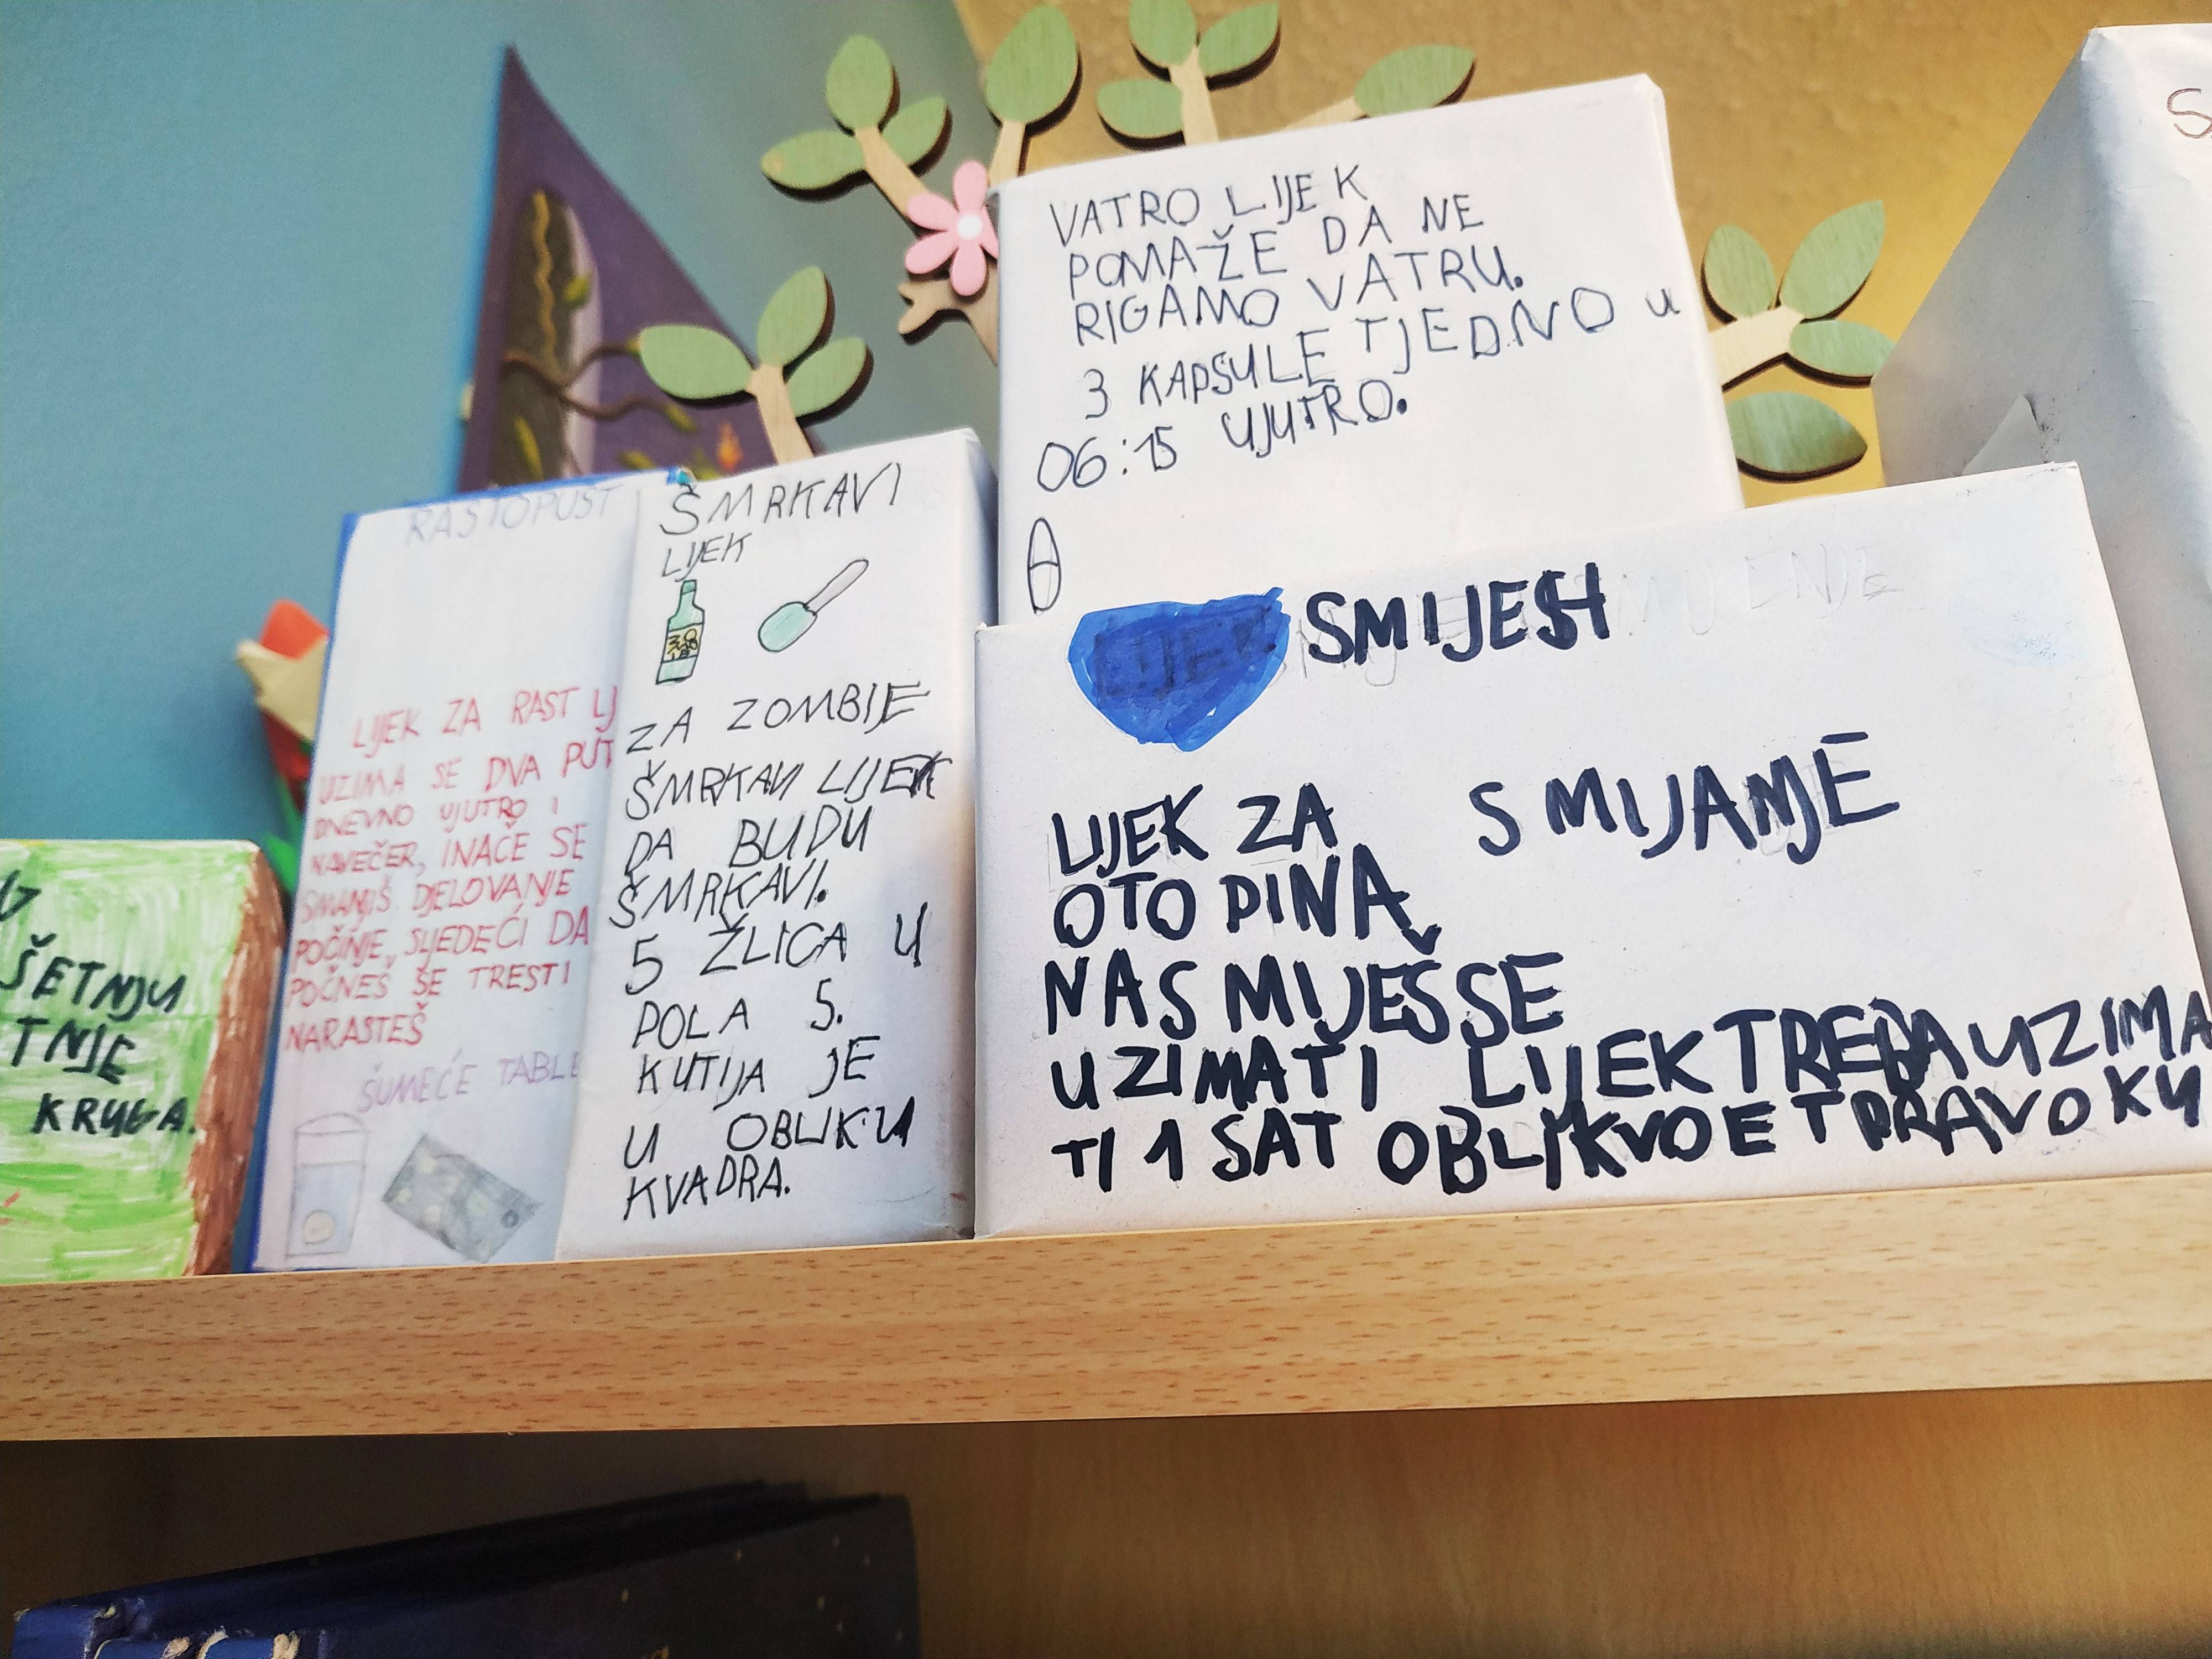 ŠETNJU
TNJE
KRUGA.
RASTOPUST
LIJEK ZA RAST LJ
UZIMA SE DVA PUT
DNEVNO UJUTRO I
NAVEČER, INAČE SE
SMANJIŠ. DJELOVANJE
POČINJE, SLJEDEĆI DA
POČNEŠ ŠE TRESTI
NARASTEŠ
ŠUMEĆE TABLE
ŠMRKAVI
LIJEK
ZA ZOMBIJE
ŠMRKAVI LIJEK
DA BUDU
ŠMRKAVI.
5 ŽLICA U
POLA 5.
KUTIJA JE
U OBLIKU
KVADRA.
VATRO LIJEK
POMAŽE DA NE
RIGAMO VATRU.
3 KAPSULE TJEDNO u
06:15 UJUTRO.
LIJEK SMIJEŠI
LIJEK ZA SMIJANJE
OTOPINA
NAS MIJEŠ SE
UZIMATI LIJEK TREBA UZIMA
TI 1 SAT OBLIK VO E T PRAVOKU